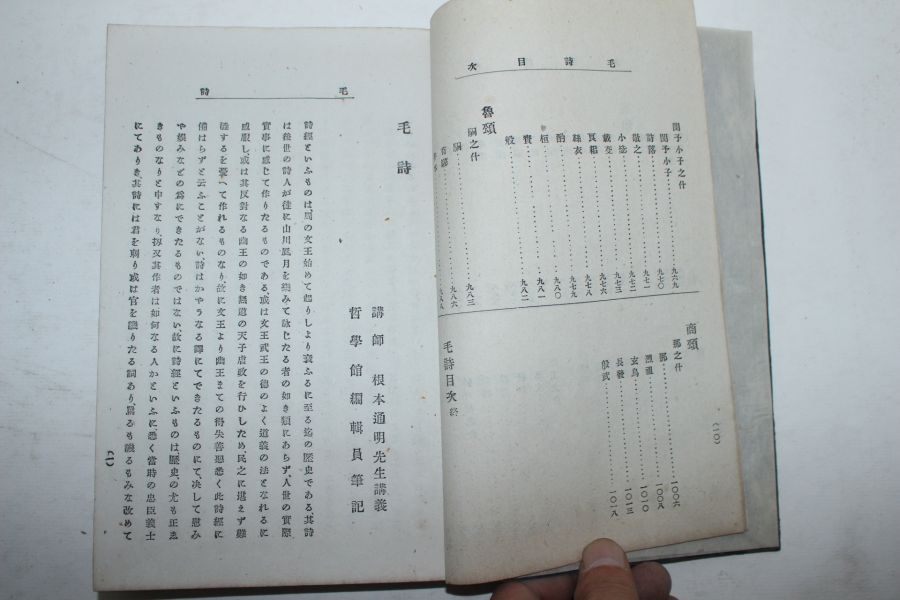 毛詩目次
閔予小子之什‥‥‥九六九
閔予小子‥‥‥九七〇
訪落‥‥‥九七一
敬之‥‥‥九七二
小毖‥‥‥九七三
載芟‥‥‥九七六
良耜‥‥‥九七八
絲衣‥‥‥九七九
酌‥‥‥九八〇
桓‥‥‥九八一
賚‥‥‥九八二
般
魯頌
駉之什‥‥‥九八三
駉‥‥‥九八六
有駜‥‥‥九八八
商頌
那之什‥‥‥一〇〇六
那‥‥‥一〇〇八
烈祖‥‥‥一〇一〇
玄鳥‥‥‥一〇一三
長發‥‥‥一〇一八
殷武
毛詩目次終
(一〇)
毛詩
毛詩
講師 根本通明先生講義
哲學館編輯員筆記
詩經といふものは、周の文王始めて起りしより衰ふるに至る迄の歷史である、其詩
は後世の詩人が徒に山川風月を樂みて詠じたる者の如き類にあらず、人世の實際
實事に感じて作りたるものである、或は文王武王の德のよく道義の法となれるに
感服し、或は其反對なる幽王の如き無道の天子虐政を行ひしため、民之に堪えず難
儀するを擧へて作れるものなり、故に文王より幽王までの得失善惡悉く此詩經に
備はらずと云ふことがない、詩はかやうなる譯にてできたるものにて、决して慰み
や娛みなどの爲にできたるものではない、故に詩經といふものは歷史の尤も正ゑ
きものなりと申すなり、扨又其作者は如何なる人かといふに、悉く當時の忠臣義士
にてありき、其詩には君を刺り或は官を譏りたる詞あり、刺るも譏るもみな改めて
(一)